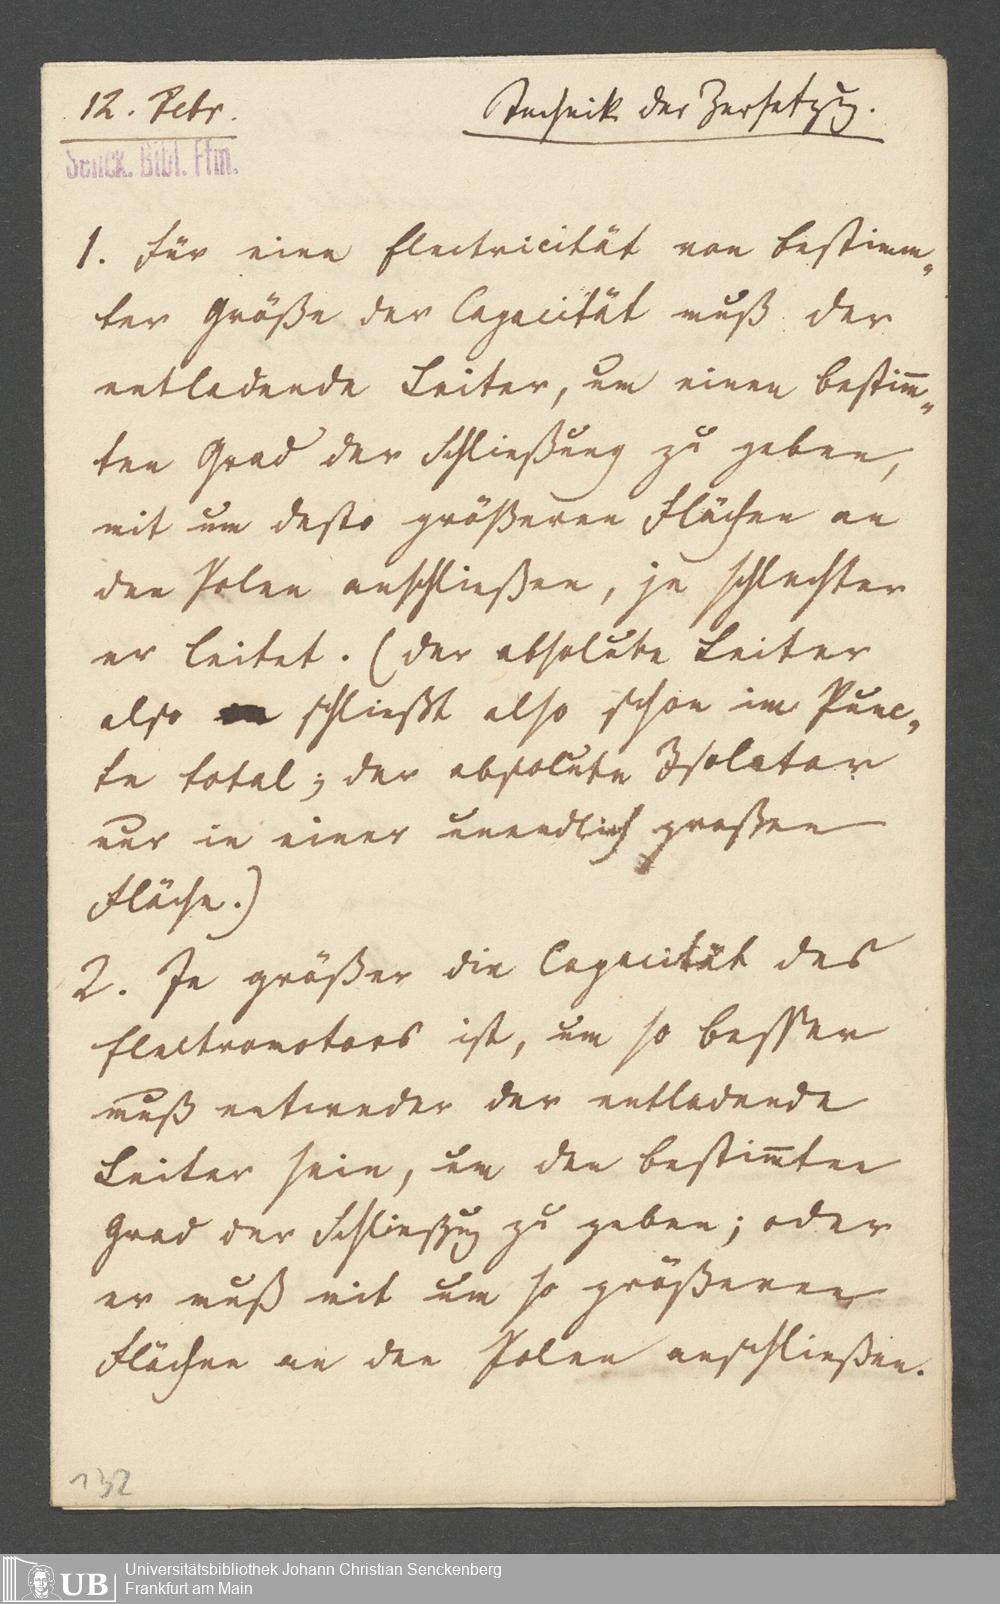 12. Febr.
Technik der Zersetzung.
Senck. Bibl. Ffm.
1. Für eine Electricität von bestimm„
ter Größe der Capacität muß der
entladende Leiter, um einen bestim̄„
ten Grad der Schließung zu geben,
mit um desto größeren Flächen an
den Polen anschließen, je schlechter
er leitet. (der absolute Leiter
also schließt also schon im Punc„
te total; der absolute Isolator
nur in einer unendlich großen
Fläche.)
2. Je größer die Capacität des
Electromotors ist, um so besser
muß entweder der entladende
Leiter sein, um den bestim̄ten
Grad der Schließung zu geben; oder
er muß mit um so größeren
Flächen an den Polen anschließen.
132
UB
Universitätsbibliothek Johann Christian Senckenberg
Frankfurt am Main